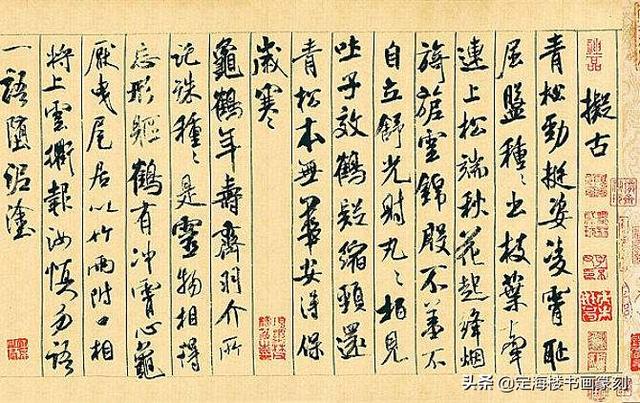 擬古
青松勁挺姿凌霄恥
屈盤種〻出枝葉牽
連上松端秋花起絳烟
旖旎雲錦殷不羞不
自立舒光射丸〻柏見
吐子效鶴疑縮頸還
青松本無華安得保
歲寒
龜鶴年壽齊羽介所
託殊種〻是靈物相得
忘形軀鶴有冲霄心龜
厭曳尾居以竹兩附口相
將上雲衢報汝慎勿語
一語墮泥塗
头条 @定海楼书画篆刻